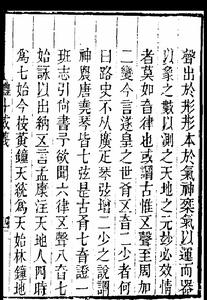 聲出於形形本於氣神乘氣以運而器
以象之數以測之天地之元妙必效情
者莫如音律也或謂古惟𠄡聲至周加
二變今言邃皇之世有𠄡音二少者何
曰路史不从廣定琴弦增二少之說謂
神農唐堯琴皆七弦是古有七音證一
班志引尚書予欲聞六律𠄡聲八音七
始詠以出納𠄡言孟康注天地人四時
爲七始今按黃鐘天統爲天始林鐘地